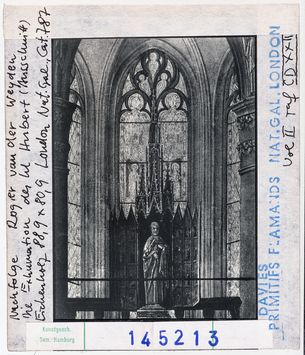 Nachfolge Rogier van der Weyden
The Exhumation des hl. Hubert (Ausschnitt)
Eichenholz 88,9 x 80,9 London Nat. Gal., Cat. 787
DAVIES
PRIMITIFS FLAMANDS NAT. GAL. LONDON
Vol II Taf CDXXII
Kunstgesch.
Sem. Hamburg
145213